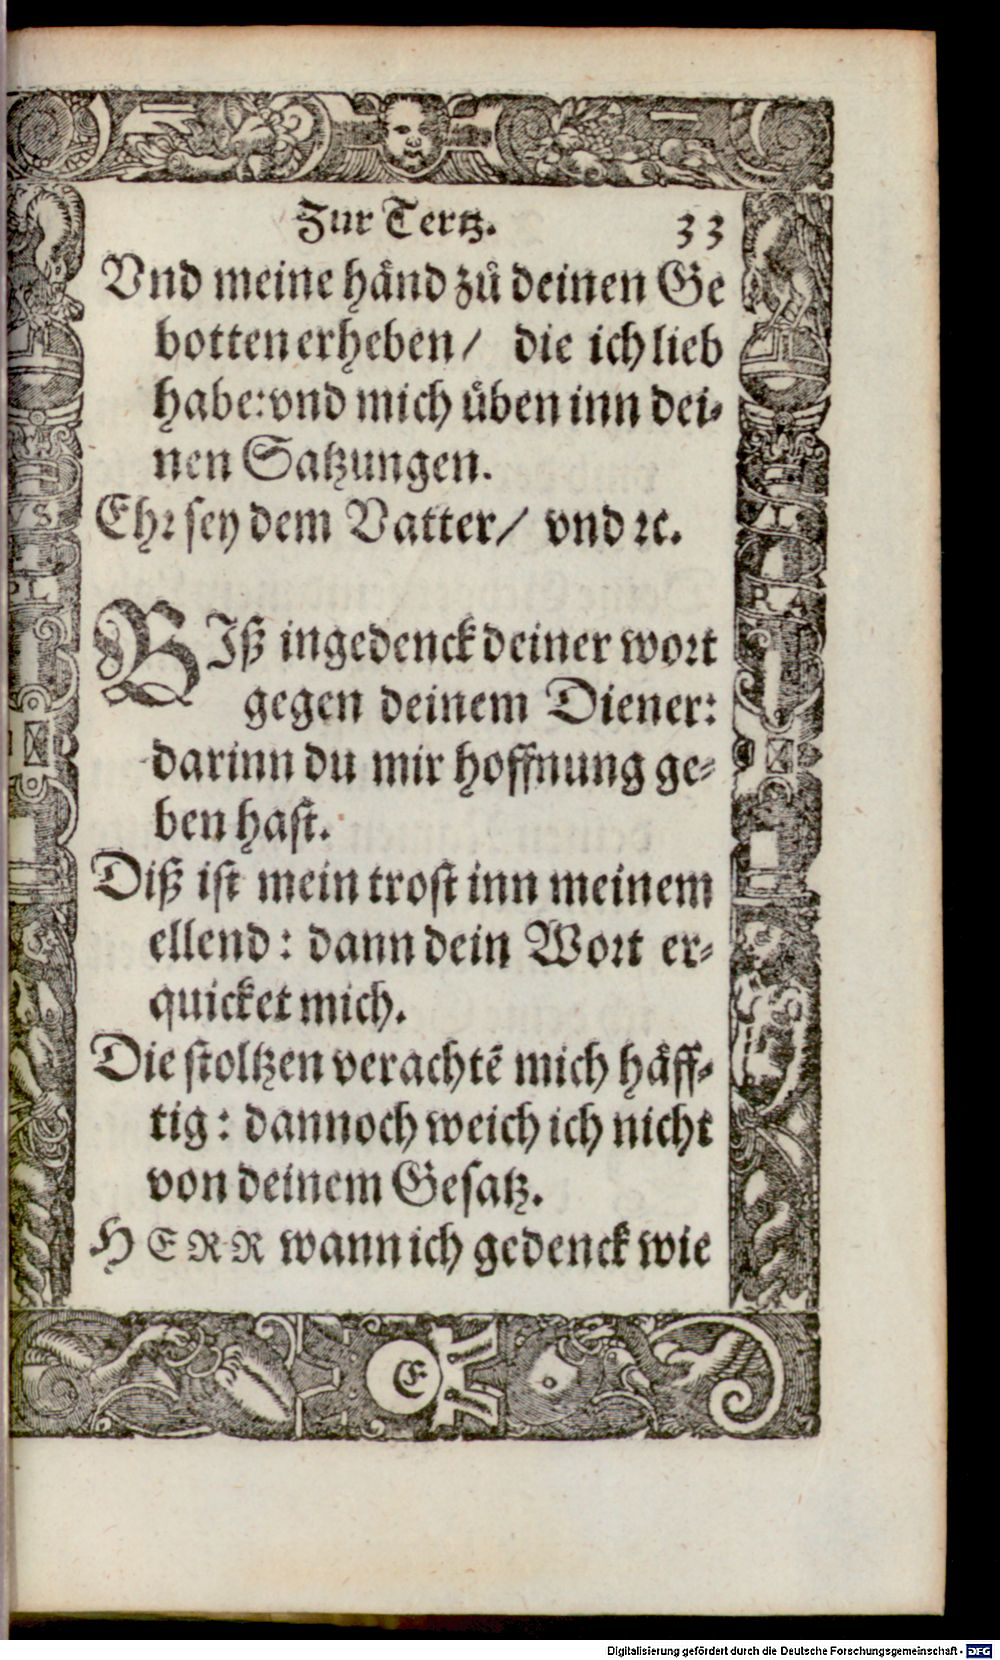 Zur Tertz. 33
Vnd meine hånd zů deinen Ge
botten erheben/ die ich lieb
habe: vnd mich üben inn dei-
nen Satzungen.
Ehr sey dem Vatter/ vnd ꝛc.
BIß ingedenck deiner wort
gegen deinem Diener:
darinn du mir hoffnung ge-
ben hast.
Diß ist mein trost inn meinem
ellend: dann dein Wort er-
quicket mich.
Die stoltzen verachtē mich häff-
tig: dannoch weich ich nicht
von deinem Gesatz.
HERR wann ich gedenck wie
E
Digitalisierung gefördert durch die Deutsche Forschungsgemeinschaft - DFG